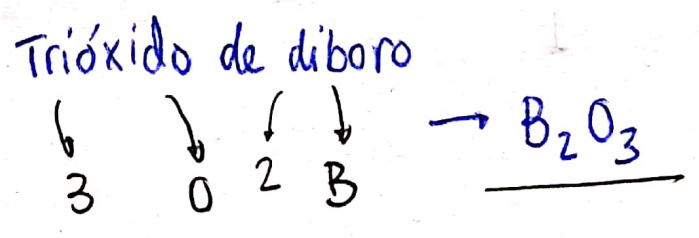 Trióxido de diboro
3 O 2 B → B₂O₃